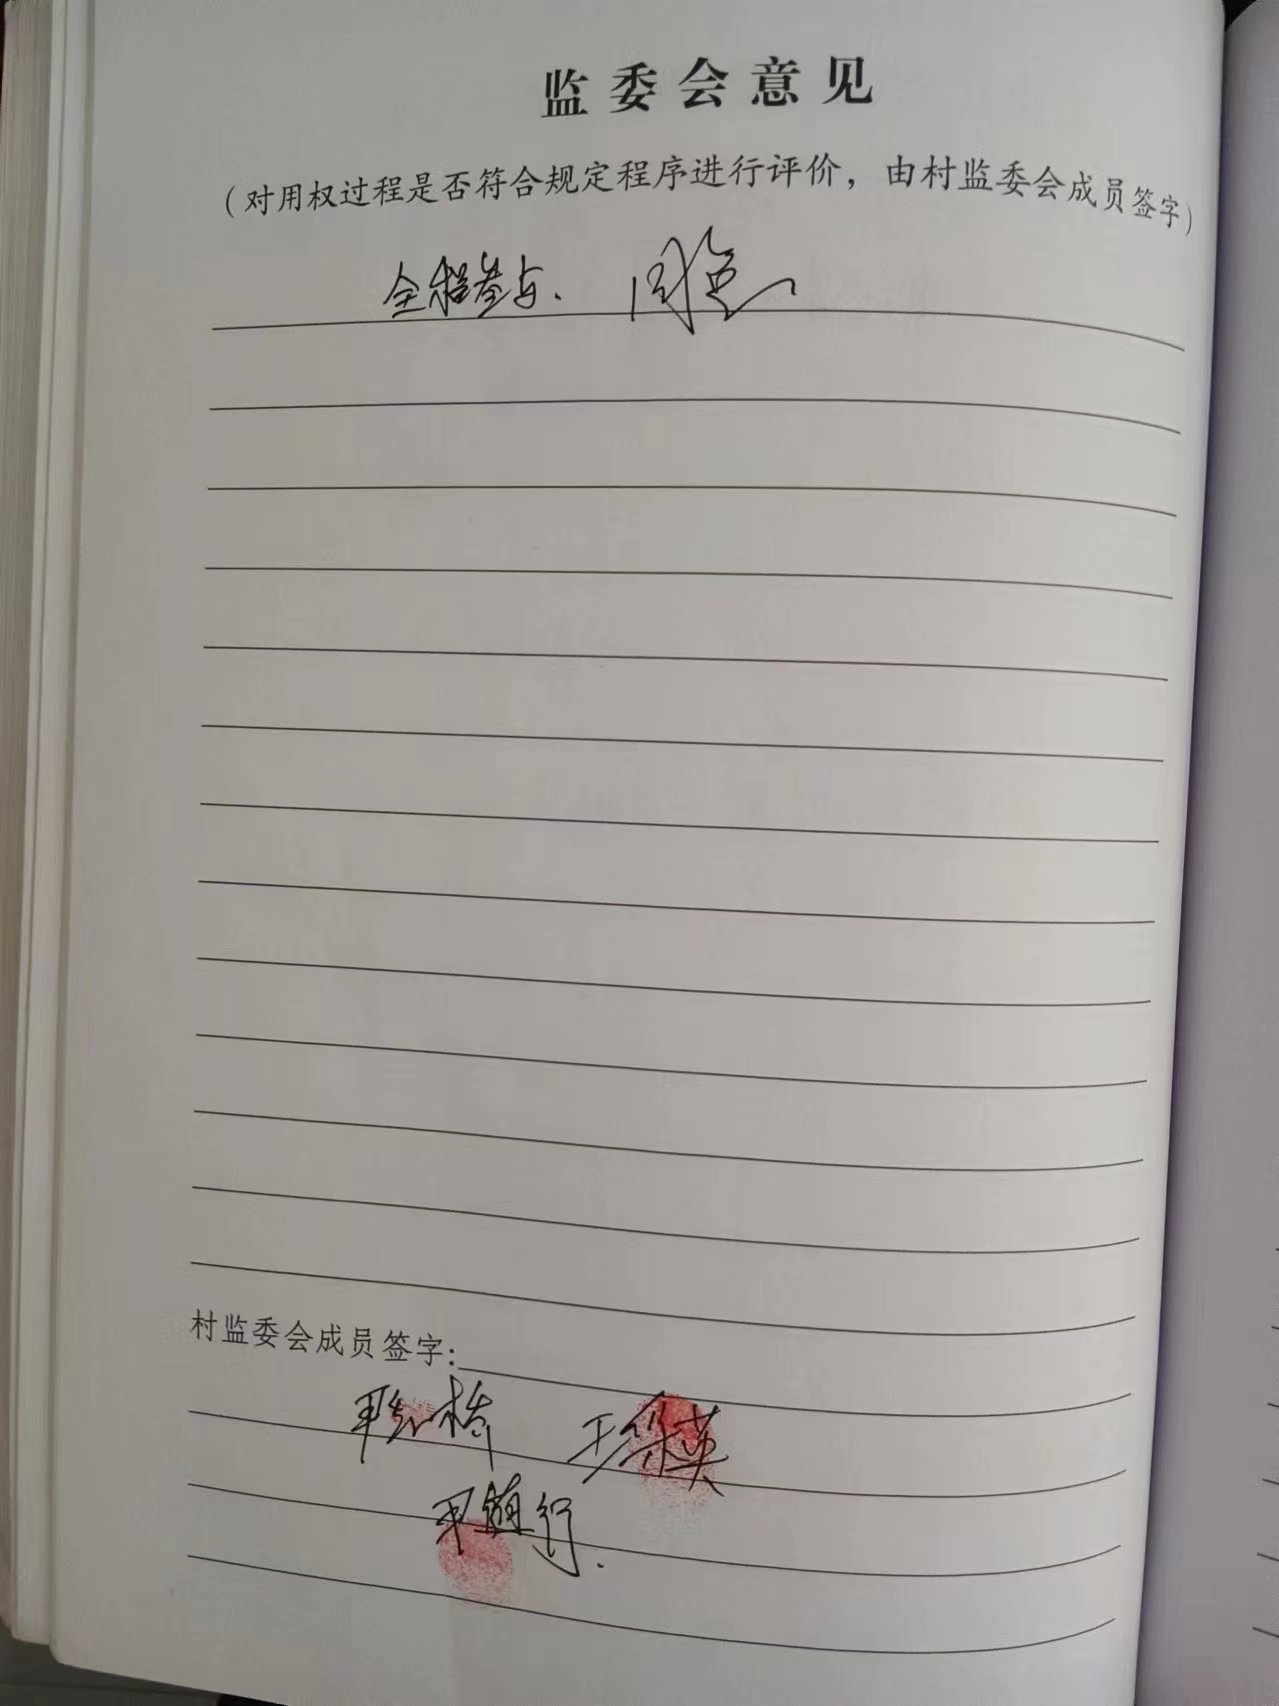 监委会意见
（对用权过程是否符合规定程序进行评价，由村监委会成员签字）
全程参与. 同意
村监委会成员签字:
王绵英